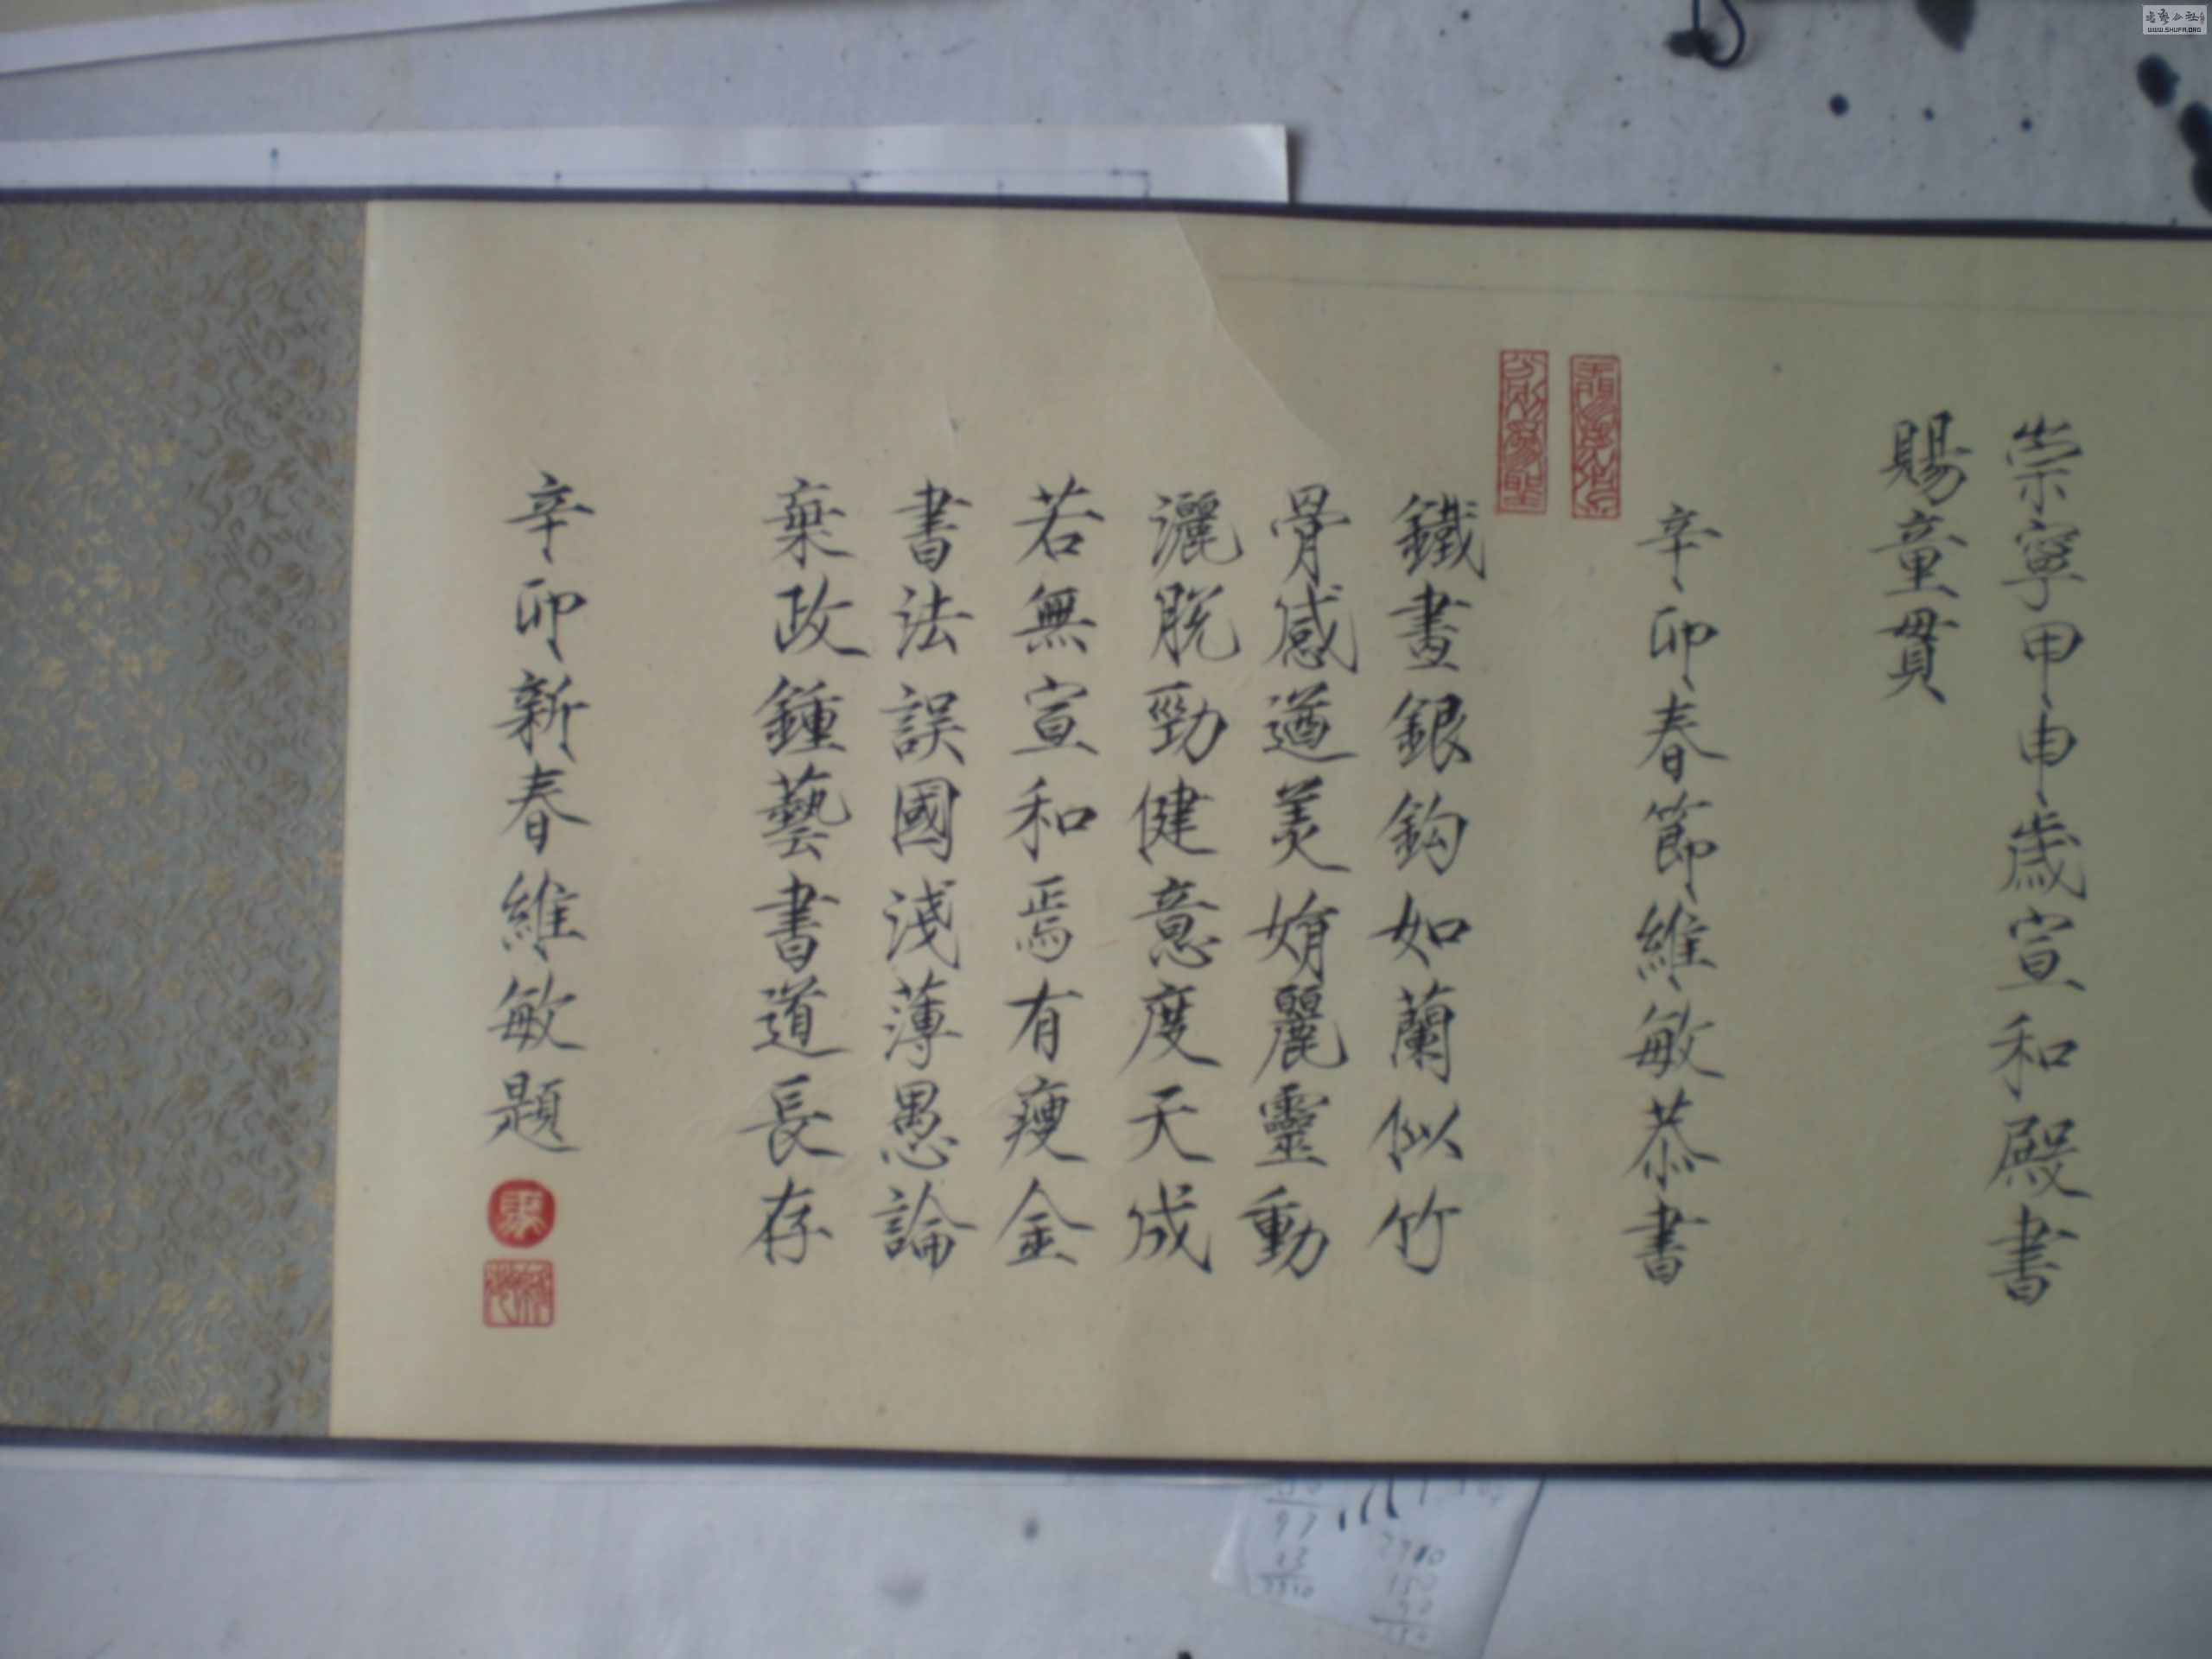 崇寧甲申歲宣和殿書
賜童貫
辛卯春節維敏恭書
鐵畫銀鈎如蘭似竹
骨感遒美媚麗靈動
灑脫勁健意度天成
若無宣和焉有瘦金
書法誤國淺薄愚論
棄政鍾藝書道長存
辛卯新春維敏題
WWW.SHUFA.ORG